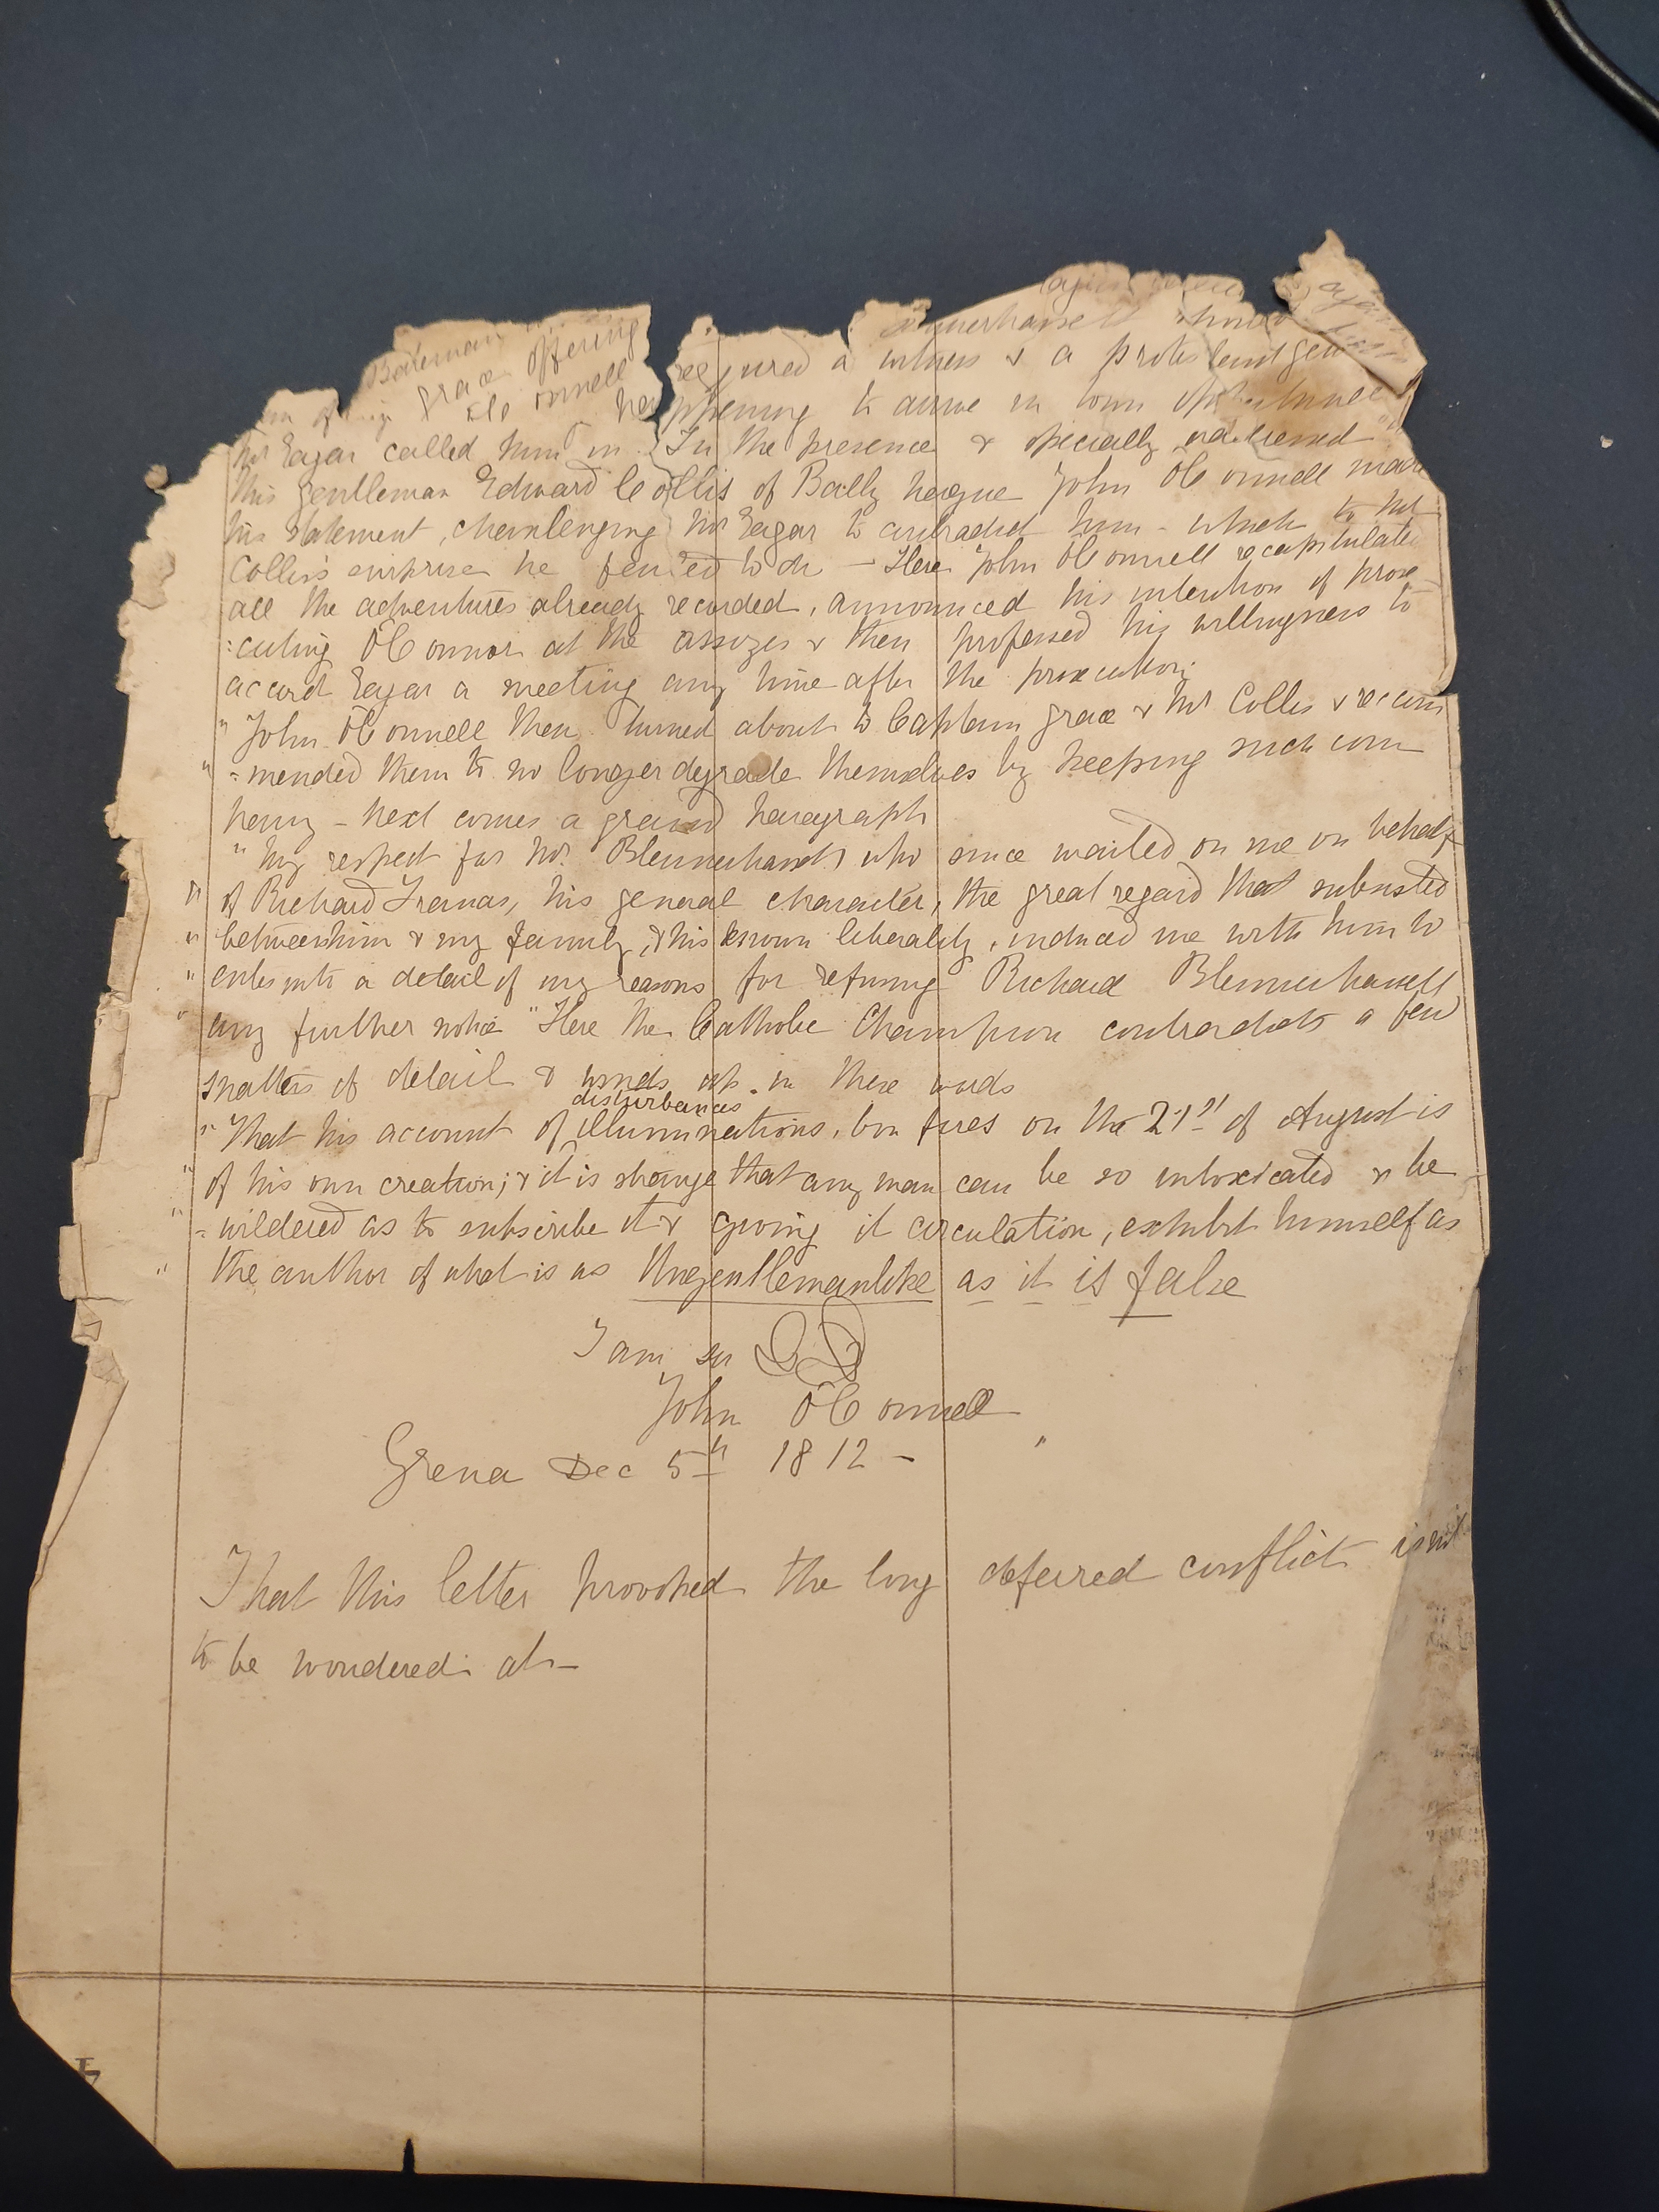 Bateman
Grace offering
O'Connell
required a witness & a protestant gen
happening to arrive in town
Mr Eagar called him in. In the presence & specially addressed
this gentleman Edward Collis of Bally heigue John O'Connell made
his statement, chamlenging Mr Eagar to contradict him - which to Mr
Collis's surprise he to do - Here John O'Connell recapitulated
all the adventures already recorded, announced his intention of prose
:cuting O'Connor at the assizes & then professed his willingness to
accord Eagar a meeting any time after the prosecution;
" John O'Connell then turned about to Captain Grace & Mr Collis & recom
" = mended them to no longer degrade themselves by keeping such com
pany - next comes a grand paragraph
" My respect for Mr. Blennerhassett who since waited on me on behalf
" of Richard his general character, the great regard that subsisted
" between him & my family, & his known liberality, induced me with him to
" enter into a detail of my reasons for refusing Richard Blennerhassett
" any further notice " Here the Catholic Champion contradicts a few
matters of detail & winds up in these words
disturbances
" That his account of illuminations, bon fires on the 21st of August is
" of his own creation; & it is strange that any man can be so intoxicated & be
" = wildered as to subscribe it & giving it circulation, exhibit himself as
" the author of what is as Ungentlemanlike as it is false
I am sir
John O'Connell
Grena Dec 5th 1812 -
That this letter provoked the long deferred conflict is not
to be wondered at -